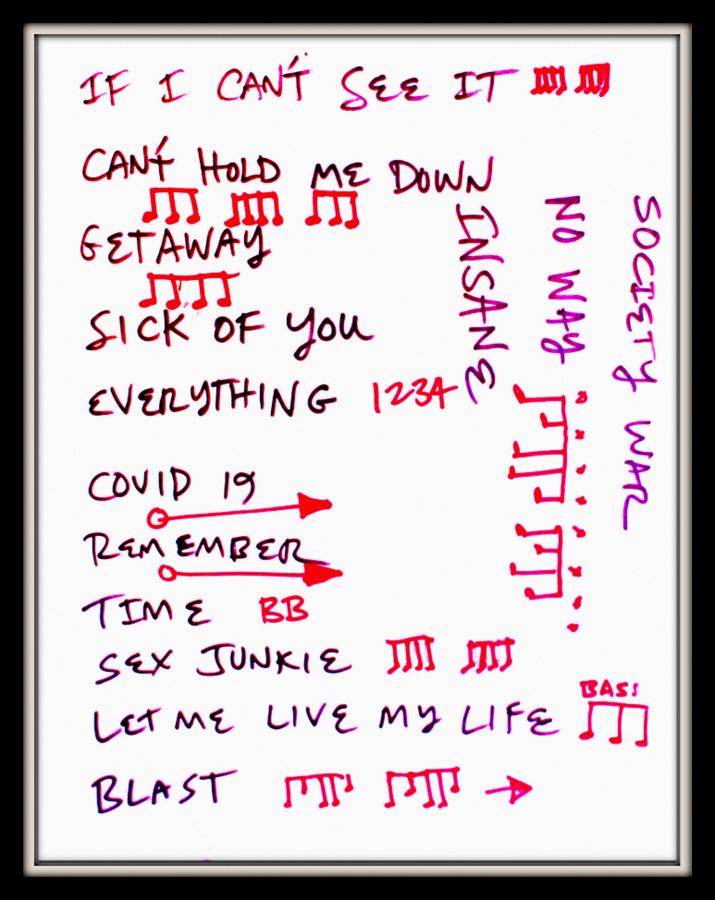 IF I CAN'T SEE IT
CAN'T HOLD ME DOWN
GETAWAY
SICK OF YOU
EVERYTHING 1234
COVID 19
REMEMBER
TIME BB
SEX JUNKIE
LET ME LIVE MY LIFE BASS
BLAST
INSANE
NO WAY
SOCIETY WAR